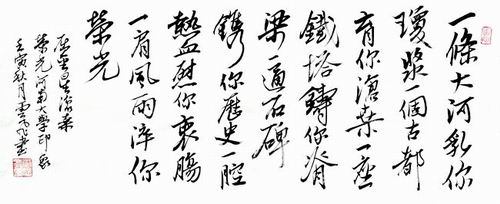 一條大河乳你
瓊漿一個古都
育你滄桑一座
鐵塔鑄你脊
梁一通石碑
鐫你歷史一腔
熱血慰你衷腸
一肩風雨淬你
榮光
歷盡是滄桑
榮光河南大學印象
壬寅秋月雲飛書